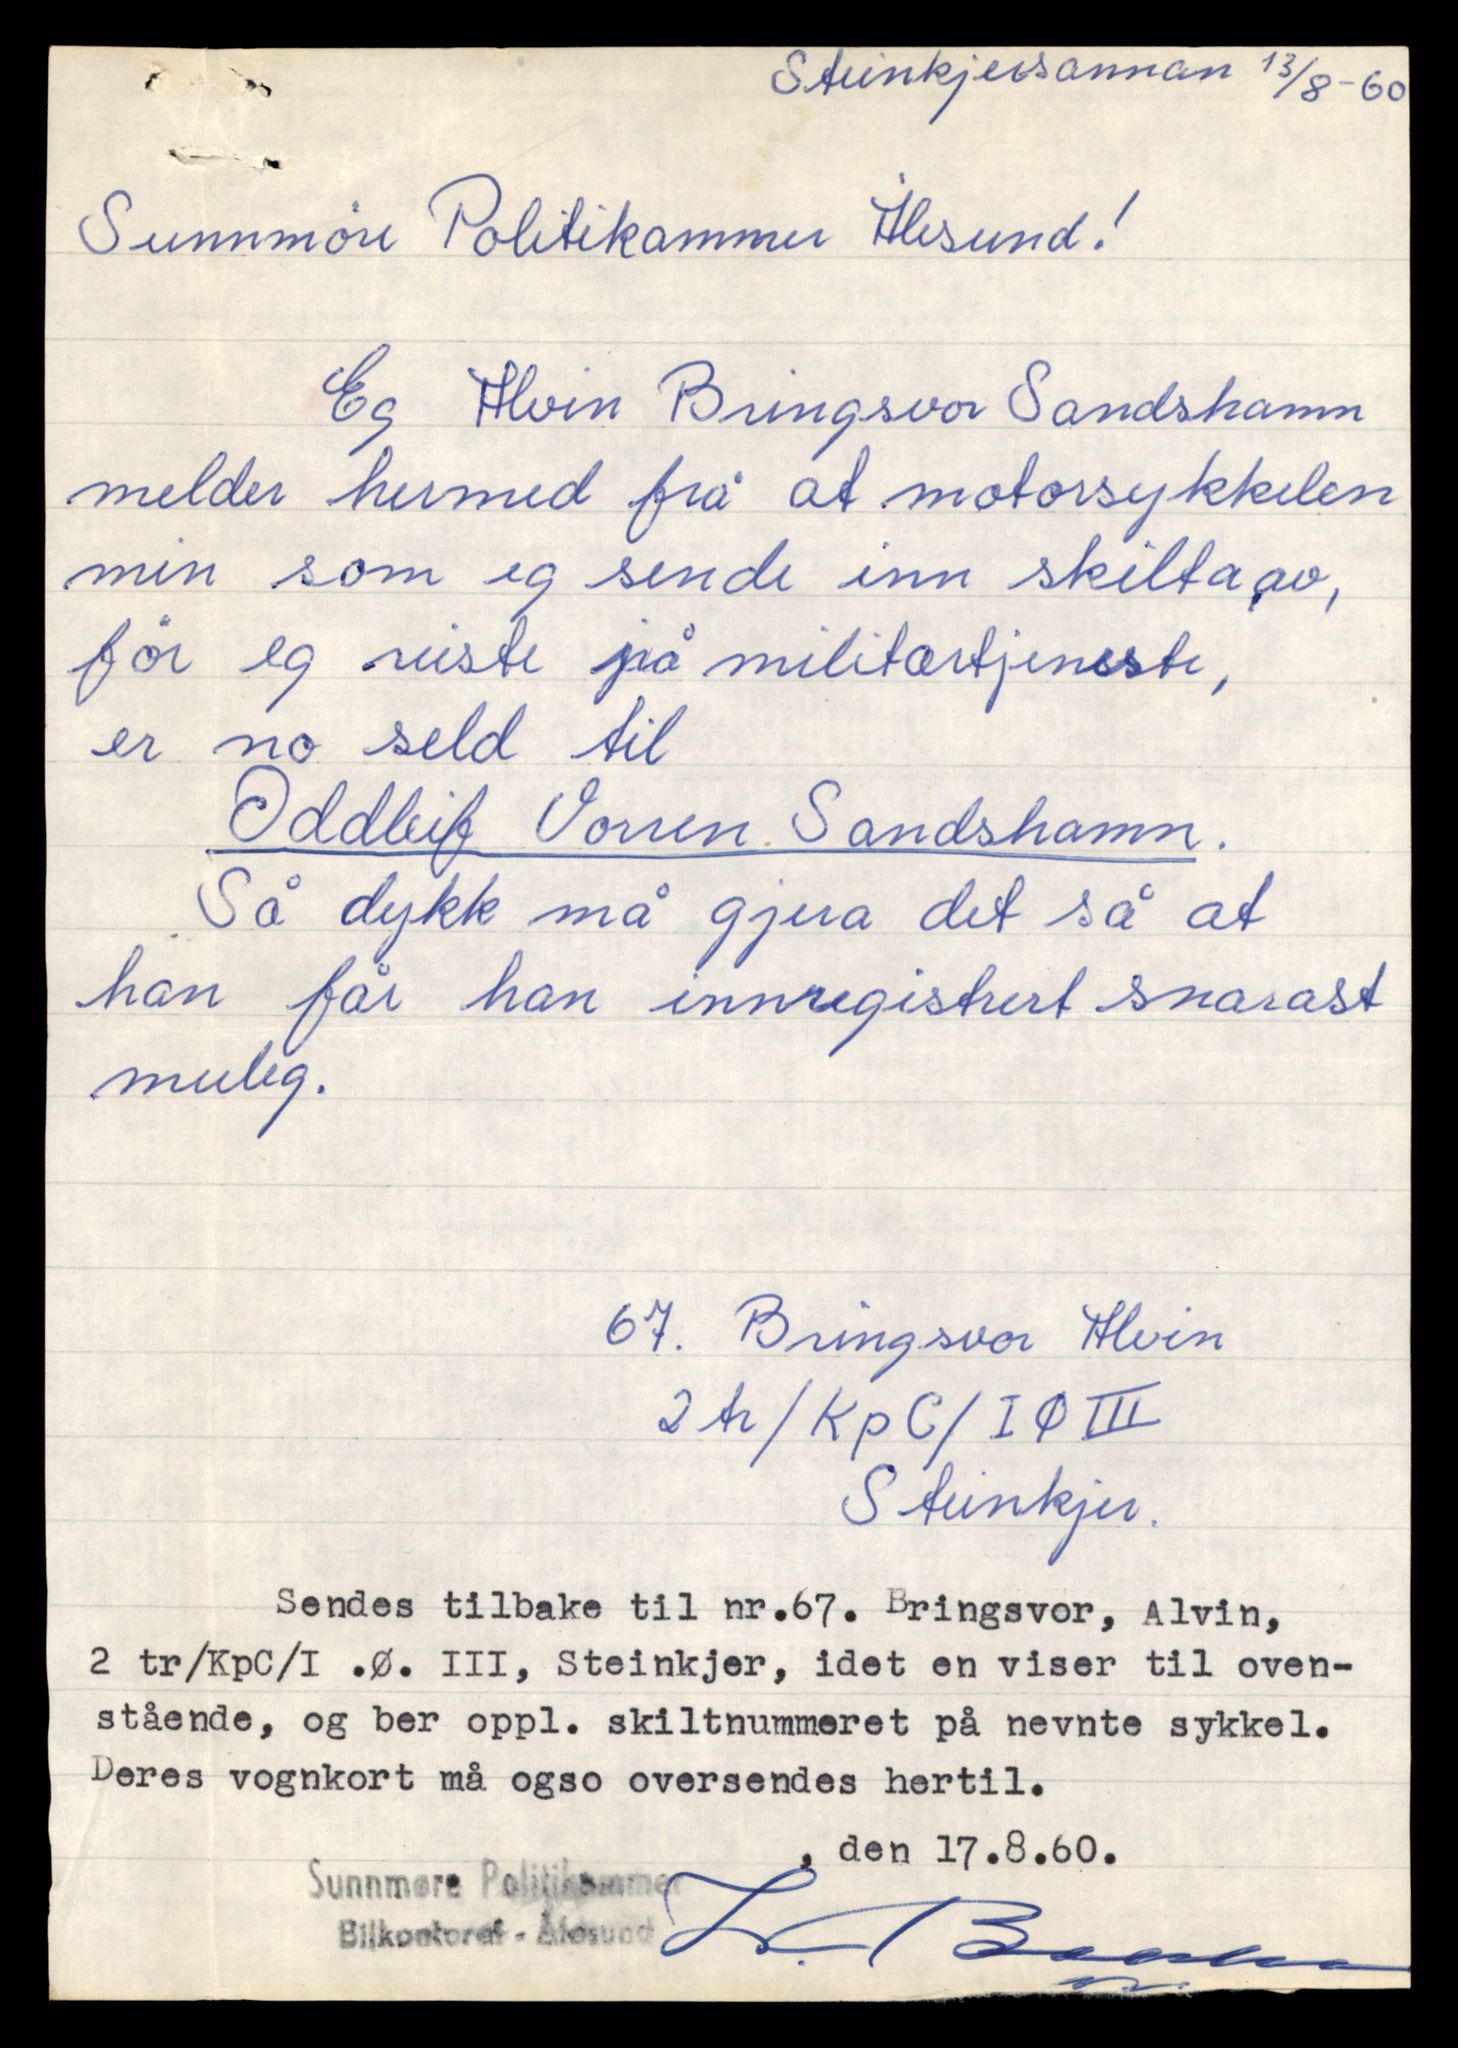 Steinkjersannan 13/8-60
Sunnmöre Politikammer Ålesund!
Eg Alvin Bringsvor Sandshamn
melder hermed frå at motorsykkelen
min som eg sende inn skilta av,
för eg reiste på militærtjeneste,
er no seld til
Oddleif Vorren Sandshamn.
Så dykk må gjera det så at
han får han innregistrert snarast
muleg.
67. Bringsvor Alvin
2 tr/KpC/IØIII
Steinkjer.
Sendes tilbake til nr.67. Bringsvor, Alvin,
2 tr/KpC/I .Ø. III, Steinkjer, idet en viser til oven-
stående, og ber oppl. skiltnummeret på nevnte sykkel.
Deres vognkort må ogso oversendes hertil.
, den 17.8.60.
Sunnmøre Politikammer
Bilkontoret - Ålesund